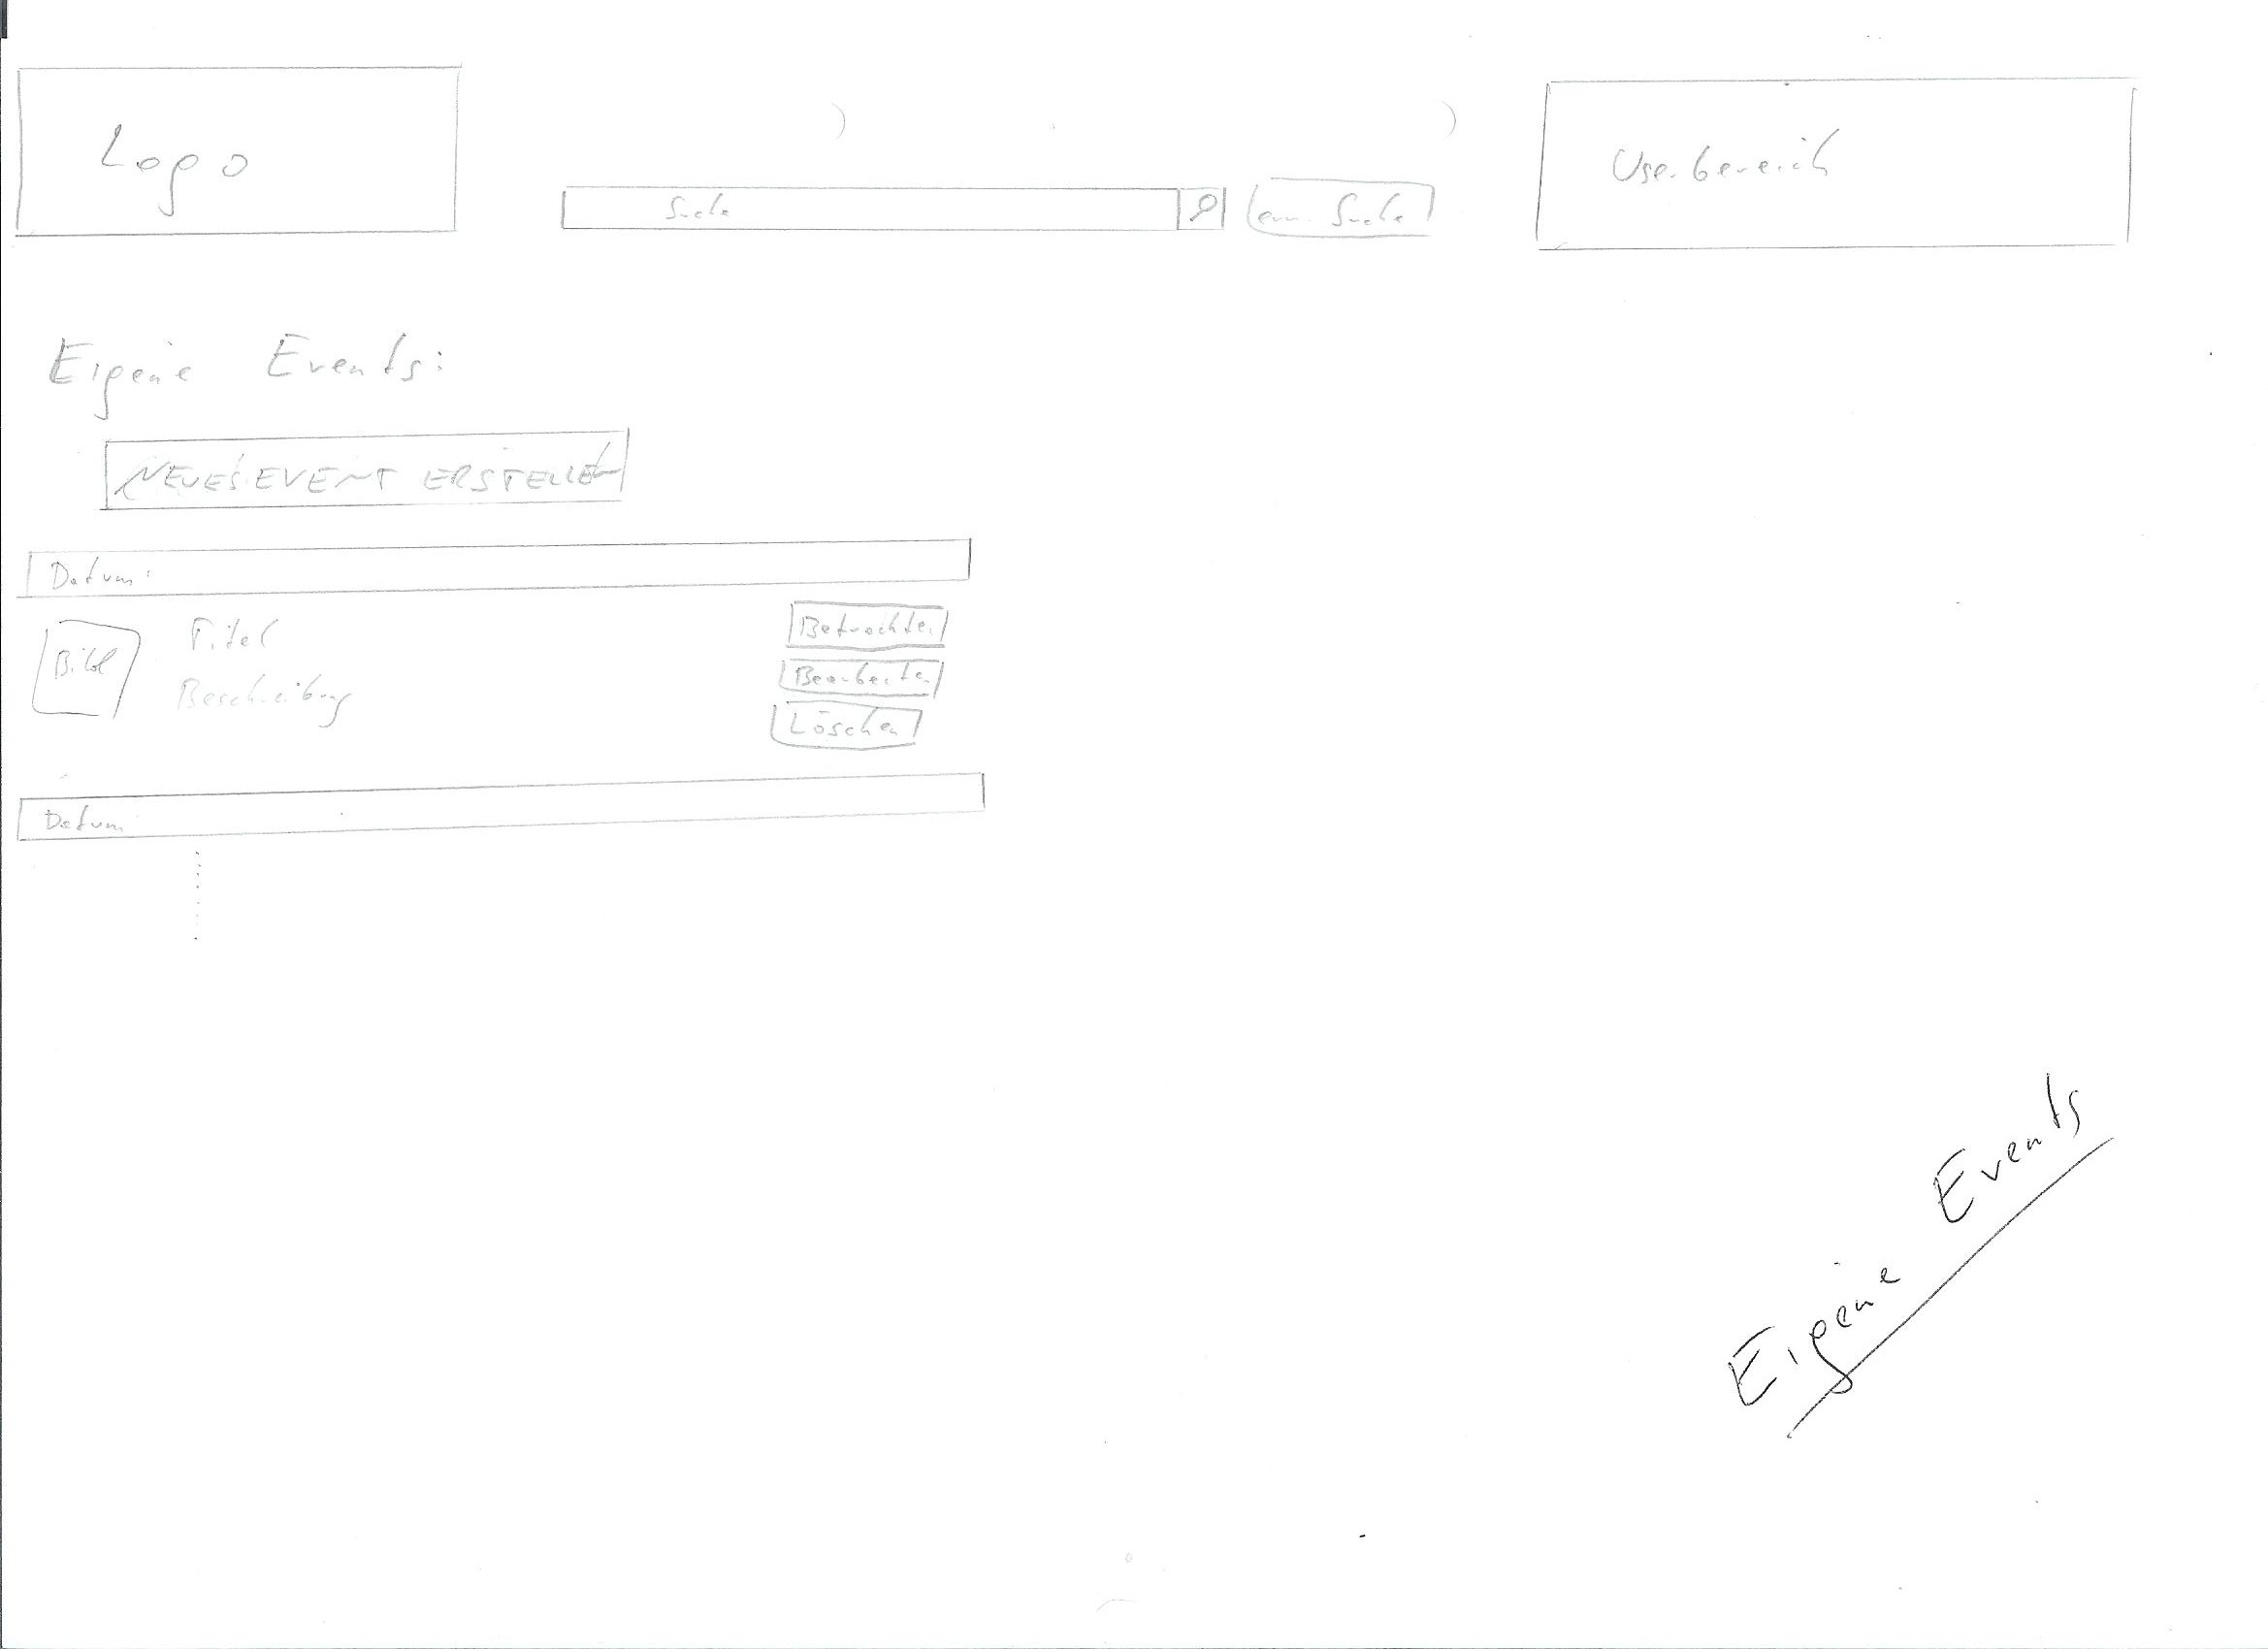 Logo
Userbereich
Suche
erw. Suche
Eigene Events:
NEUES EVENT ERSTELLEN
Datum:
Bild
Titel
Beschreibung
Betrachten
Bearbeiten
Löschen
Datum
Eigene Events